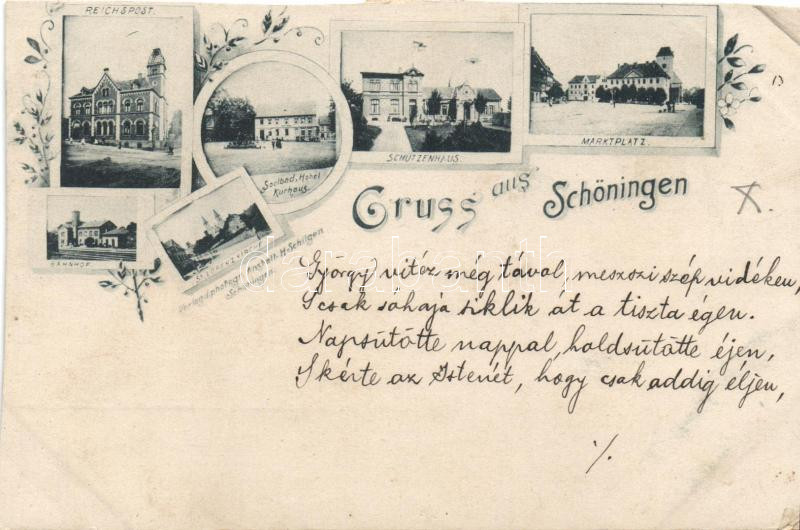 REICHSPOST.
Soolbad, Hotel
Kurhaus.
SCHÜTZENHAUS.
MARKTPLATZ.
BAHNHOF.
ST. LORENZ KIRCHE
Verlag d. photogr. Anstalt. H. Schilgen
Schöningen.
Gruss aus Schöningen
X.
György vitéz még távol, messzi szép vidéken,
S csak sohaja siklik át a tiszta égen.
Napsütötte nappal, holdsütötte éjen,
S kérte az Istenét, hogy csak addig éljen,
·/.
darabanth